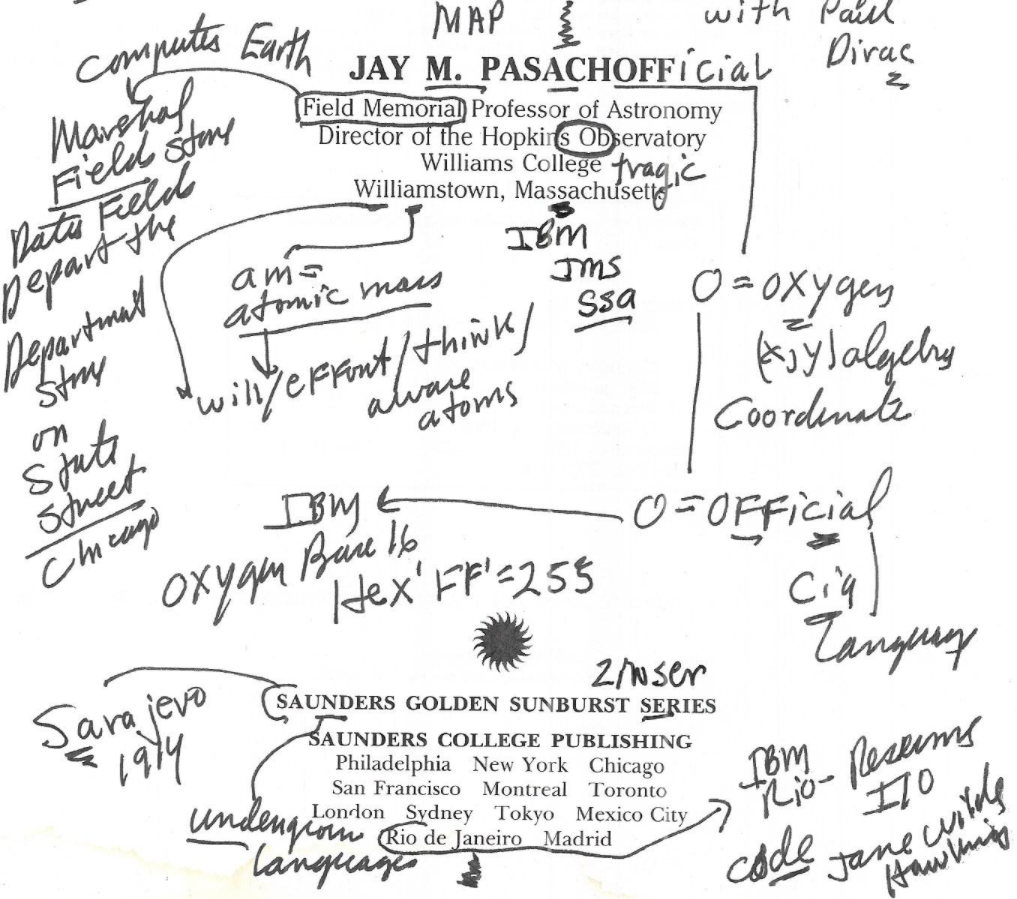 MAP
with Paul
Dirac
computes Earth
JAY M. PASACHOFFicial
Field Memorial Professor of Astronomy
Director of the Hopkins Observatory
Williams College
tragic
Williamstown, Massachusetts
Marshal
Field store
Data Field
Depart the
Department
store
on
State
Street
Chicago
am=
atomic mass
will/effort/think/
aware
atoms
IBM
IMS
SSA
O = OXygen
(x,y) algebra
Coordinate
O = OFFicial
Cia
Language
IBM
OXYgen Base 16
Hex 'FF' = 255
SAUNDERS GOLDEN SUNBURST SERIES
SAUNDERS COLLEGE PUBLISHING
Philadelphia New York Chicago
San Francisco Montreal Toronto
London Sydney Tokyo Mexico City
Rio de Janeiro Madrid
Sarajevo
1914
undergrown
languages
IBM
Rio-
I/O
code
Jane Wilde
Hawking